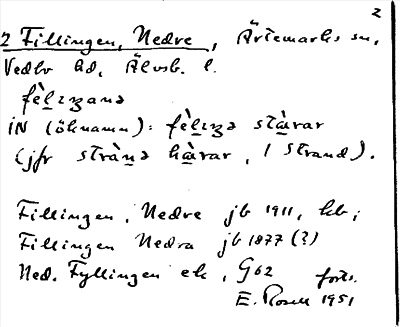 2
2 Fillingen, Nedre, Ärtemarks sn,
Vedbo hd, Älvsb. l.
fè̀lɪŋana
IN (öknamn): fè̀lɪŋa stà̀rar
(jfr strà̀na hà̀rar, 1 Strand).
Fillingen, Nedre jb 1911, kb;
Fillingen Nedra jb 1877 (?)
Ned. Fyllingen ek, G62 forts.
E. Rosell 1951